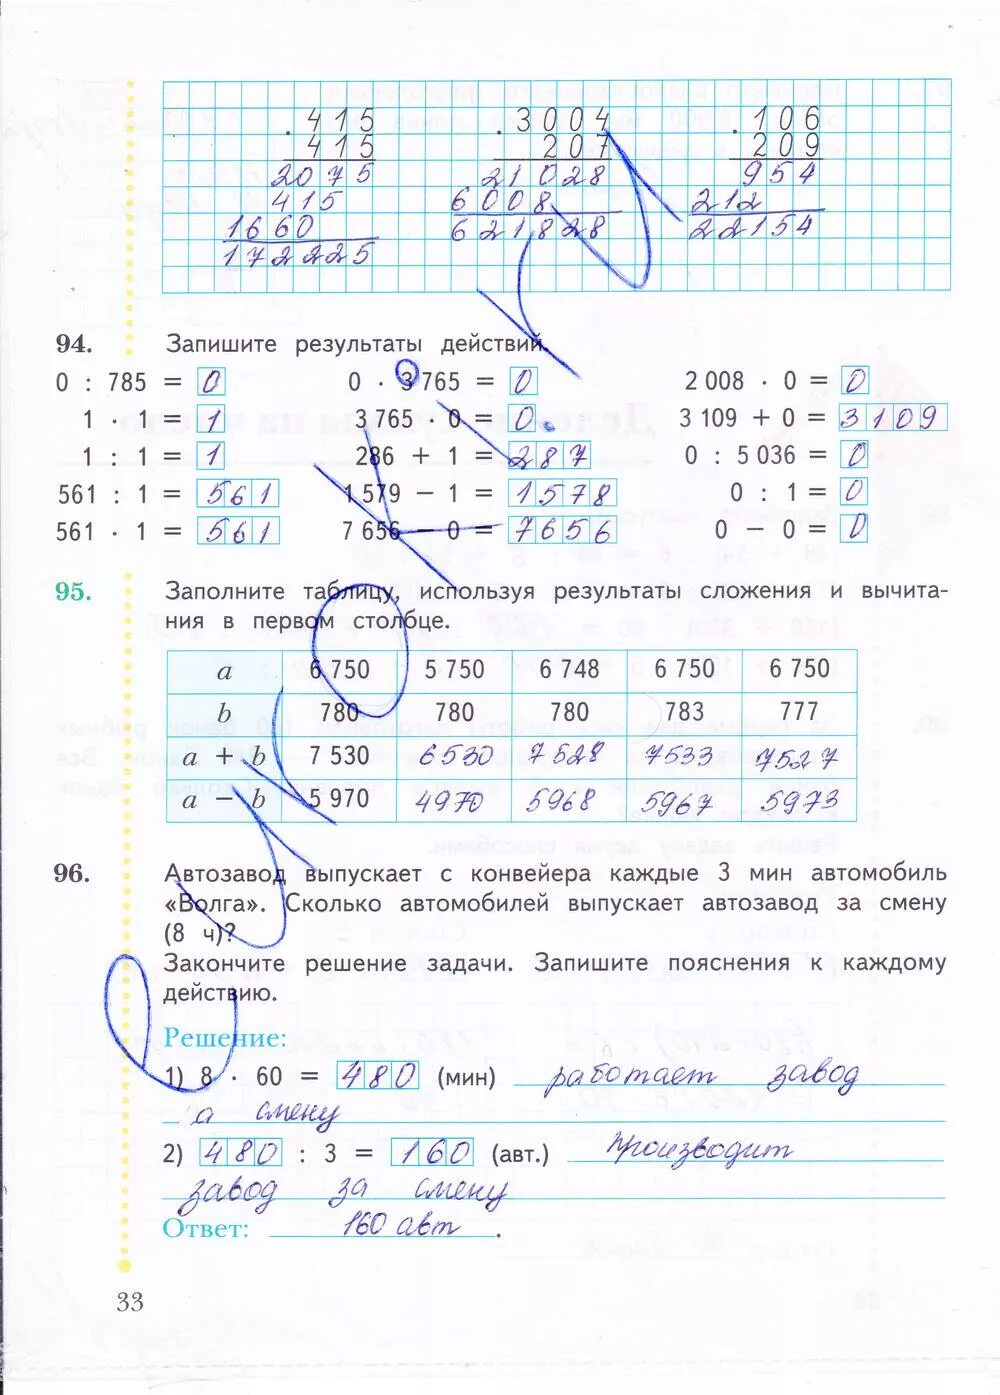 . 415 . 3004 . 106
415 207 209
2075 21028 954
415 6008 212
1660 621828 22154
172225
94. Запишите результаты действий.
0 : 785 = 0 0 · 3 765 = 0 2 008 · 0 = 0
1 · 1 = 1 3 765 · 0 = 0. 3 109 + 0 = 3109
1 : 1 = 1 286 + 1 = 287 0 : 5 036 = 0
561 : 1 = 561 1 579 − 1 = 1578 0 : 1 = 0
561 · 1 = 561 7 656 − 0 = 7656 0 − 0 = 0
95. Заполните таблицу, используя результаты сложения и вычита-
ния в первом столбце.
a 6 750 5 750 6 748 6 750 6 750
b 780 780 780 783 777
a + b 7 530 6530 7528 7533 7527
a − b 5 970 4970 5968 5967 5973
96. Автозавод выпускает с конвейера каждые 3 мин автомобиль
«Волга». Сколько автомобилей выпускает автозавод за смену
(8 ч)?
Закончите решение задачи. Запишите пояснения к каждому
действию.
Решение:
1) 8 · 60 = 480 (мин) работает завод
а смену
2) 480 : 3 = 160 (авт.) производит
завод за смену
Ответ: 160 авт.
33